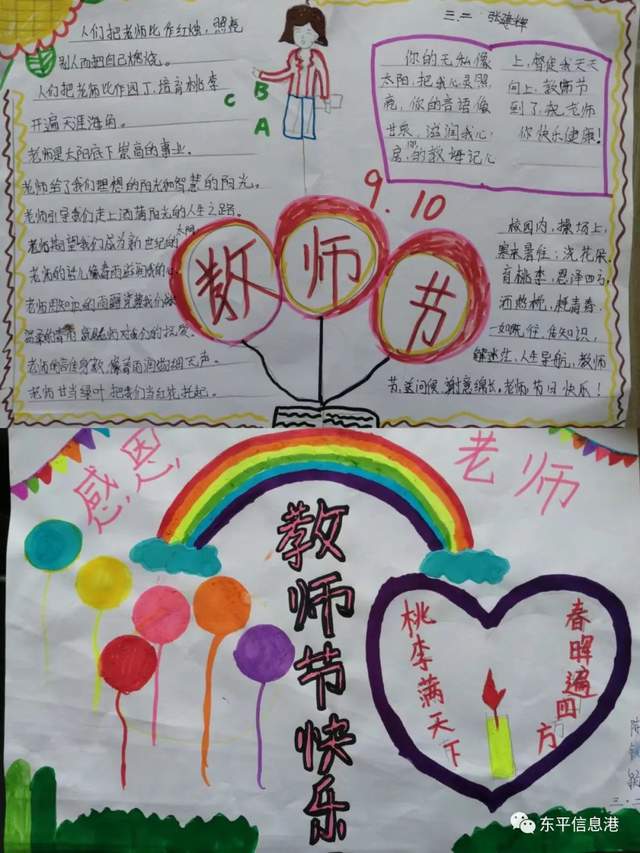 三.二 张建辉
人们把老师比作红烛，照亮
别人而把自己燃烧。
人们把老师比作园丁，培育桃李
开遍天涯海角。
老师是太阳底下崇高的事业。
老师给了我们理想的阳光和智慧的阳光。
老师引导我们走上洒满阳光的人生之路。
老师期望我们成为新世纪的太阳
老师用知识的雨露
老师甘当绿叶把我们当红花托起。
C B
A
你的无私像
太阳，把我心灵照
亮，你的言语像
甘泉，滋润我心
上，督促我天天
向上，教师节
到了，祝老师
你快乐健康！
9.10
教师节
校园内，操场上，
寒来暑往，浇花朵。
育桃李，恩泽四方，
人生导航，教师
节，送问候，谢意绵长，老师，节日快乐！
感恩 老师
教师节快乐
春晖遍四方
桃李满天下
三.二
东平信息港